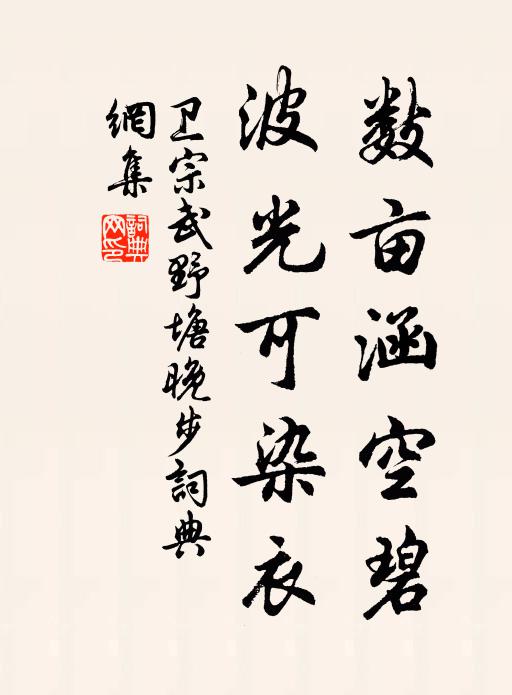 数亩涵空碧
波光可染衣
卫宗武野塘晚步詞典
網集
詞典網印